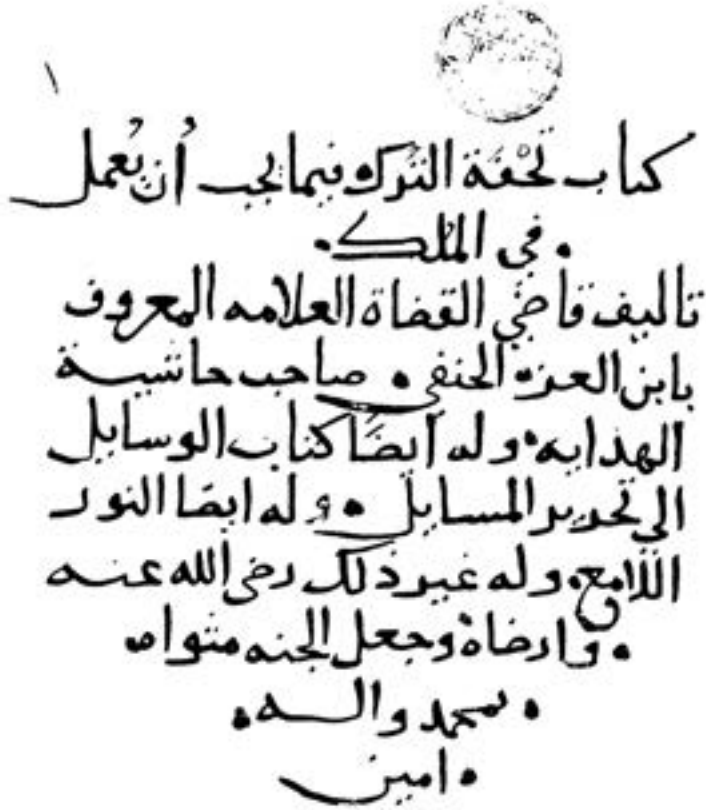 ١
كتاب تُحْفَة التُرك فيما يجب أن يُعمل
في الملك
تاليف قاضي القضاة العلامه المعروف
بابن العز الحنفي صاحب حاشية
الهدايه وله ايضًا كتاب الوسايل
الي تحرير المسايل وله ايضا النور
اللامع وله غير ذلك رضى الله عنه
وارضاه وجعل الجنه مثواه
بمحمد واله
امين